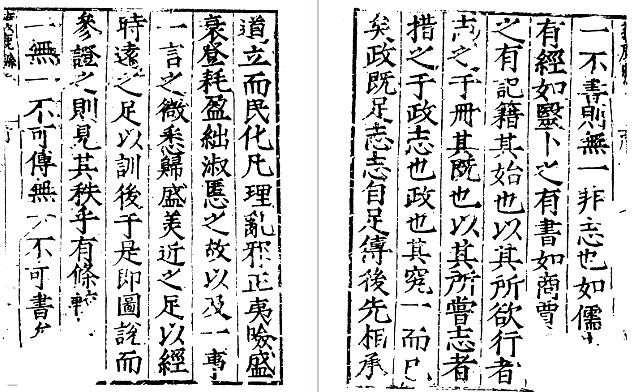 一不書則無一非志也如儒
有經如醫卜之有書如商賈
之有記籍其始也以其所欲行者
志之于冊其既也以其所嘗志者
措之于政志也政也其究一而已
矣政既足志志自足傳後先相承
道立而民化凡理亂邪正夷險盛
衰登耗盈絀淑慝之故以及一事
一言之微悉歸盛美近之足以經
時遠之足以訓後于是即圖說而
參證之則見其秩乎有條
一無一不可傳無不可書